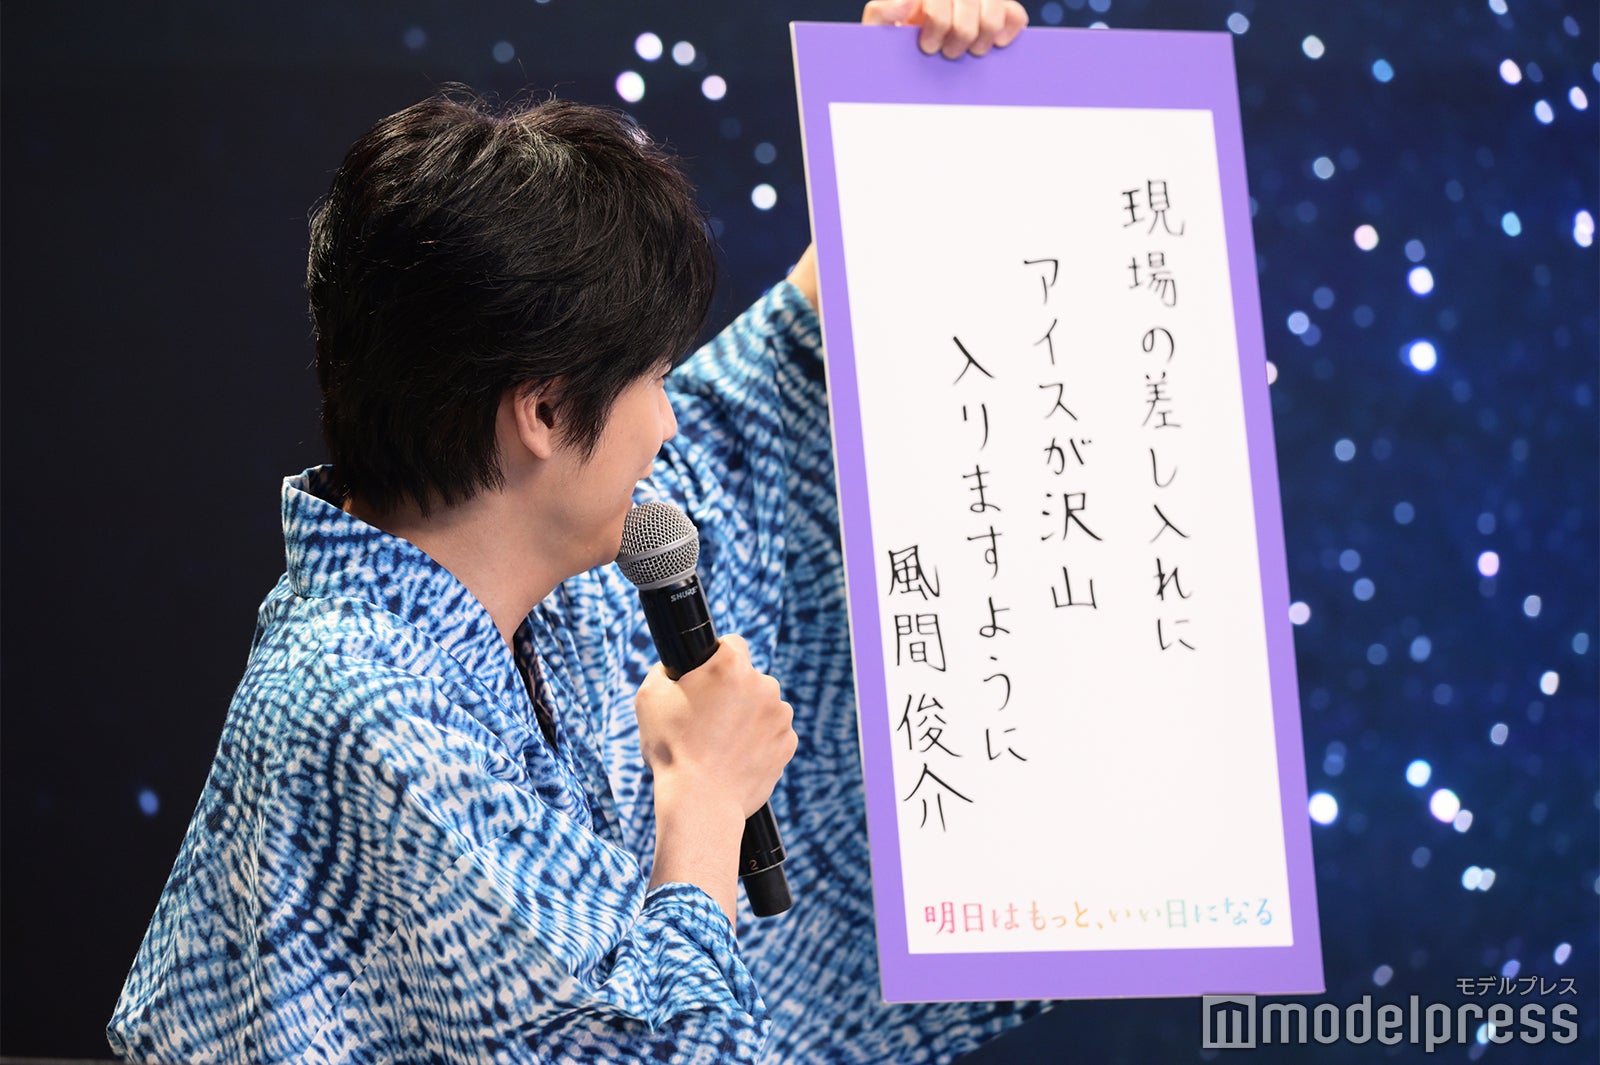 現場の差し入れに
アイスが沢山
入りますように
風間俊介
明日はもっと、いい日になる
SHURE
2
モデルプレス
modelpress